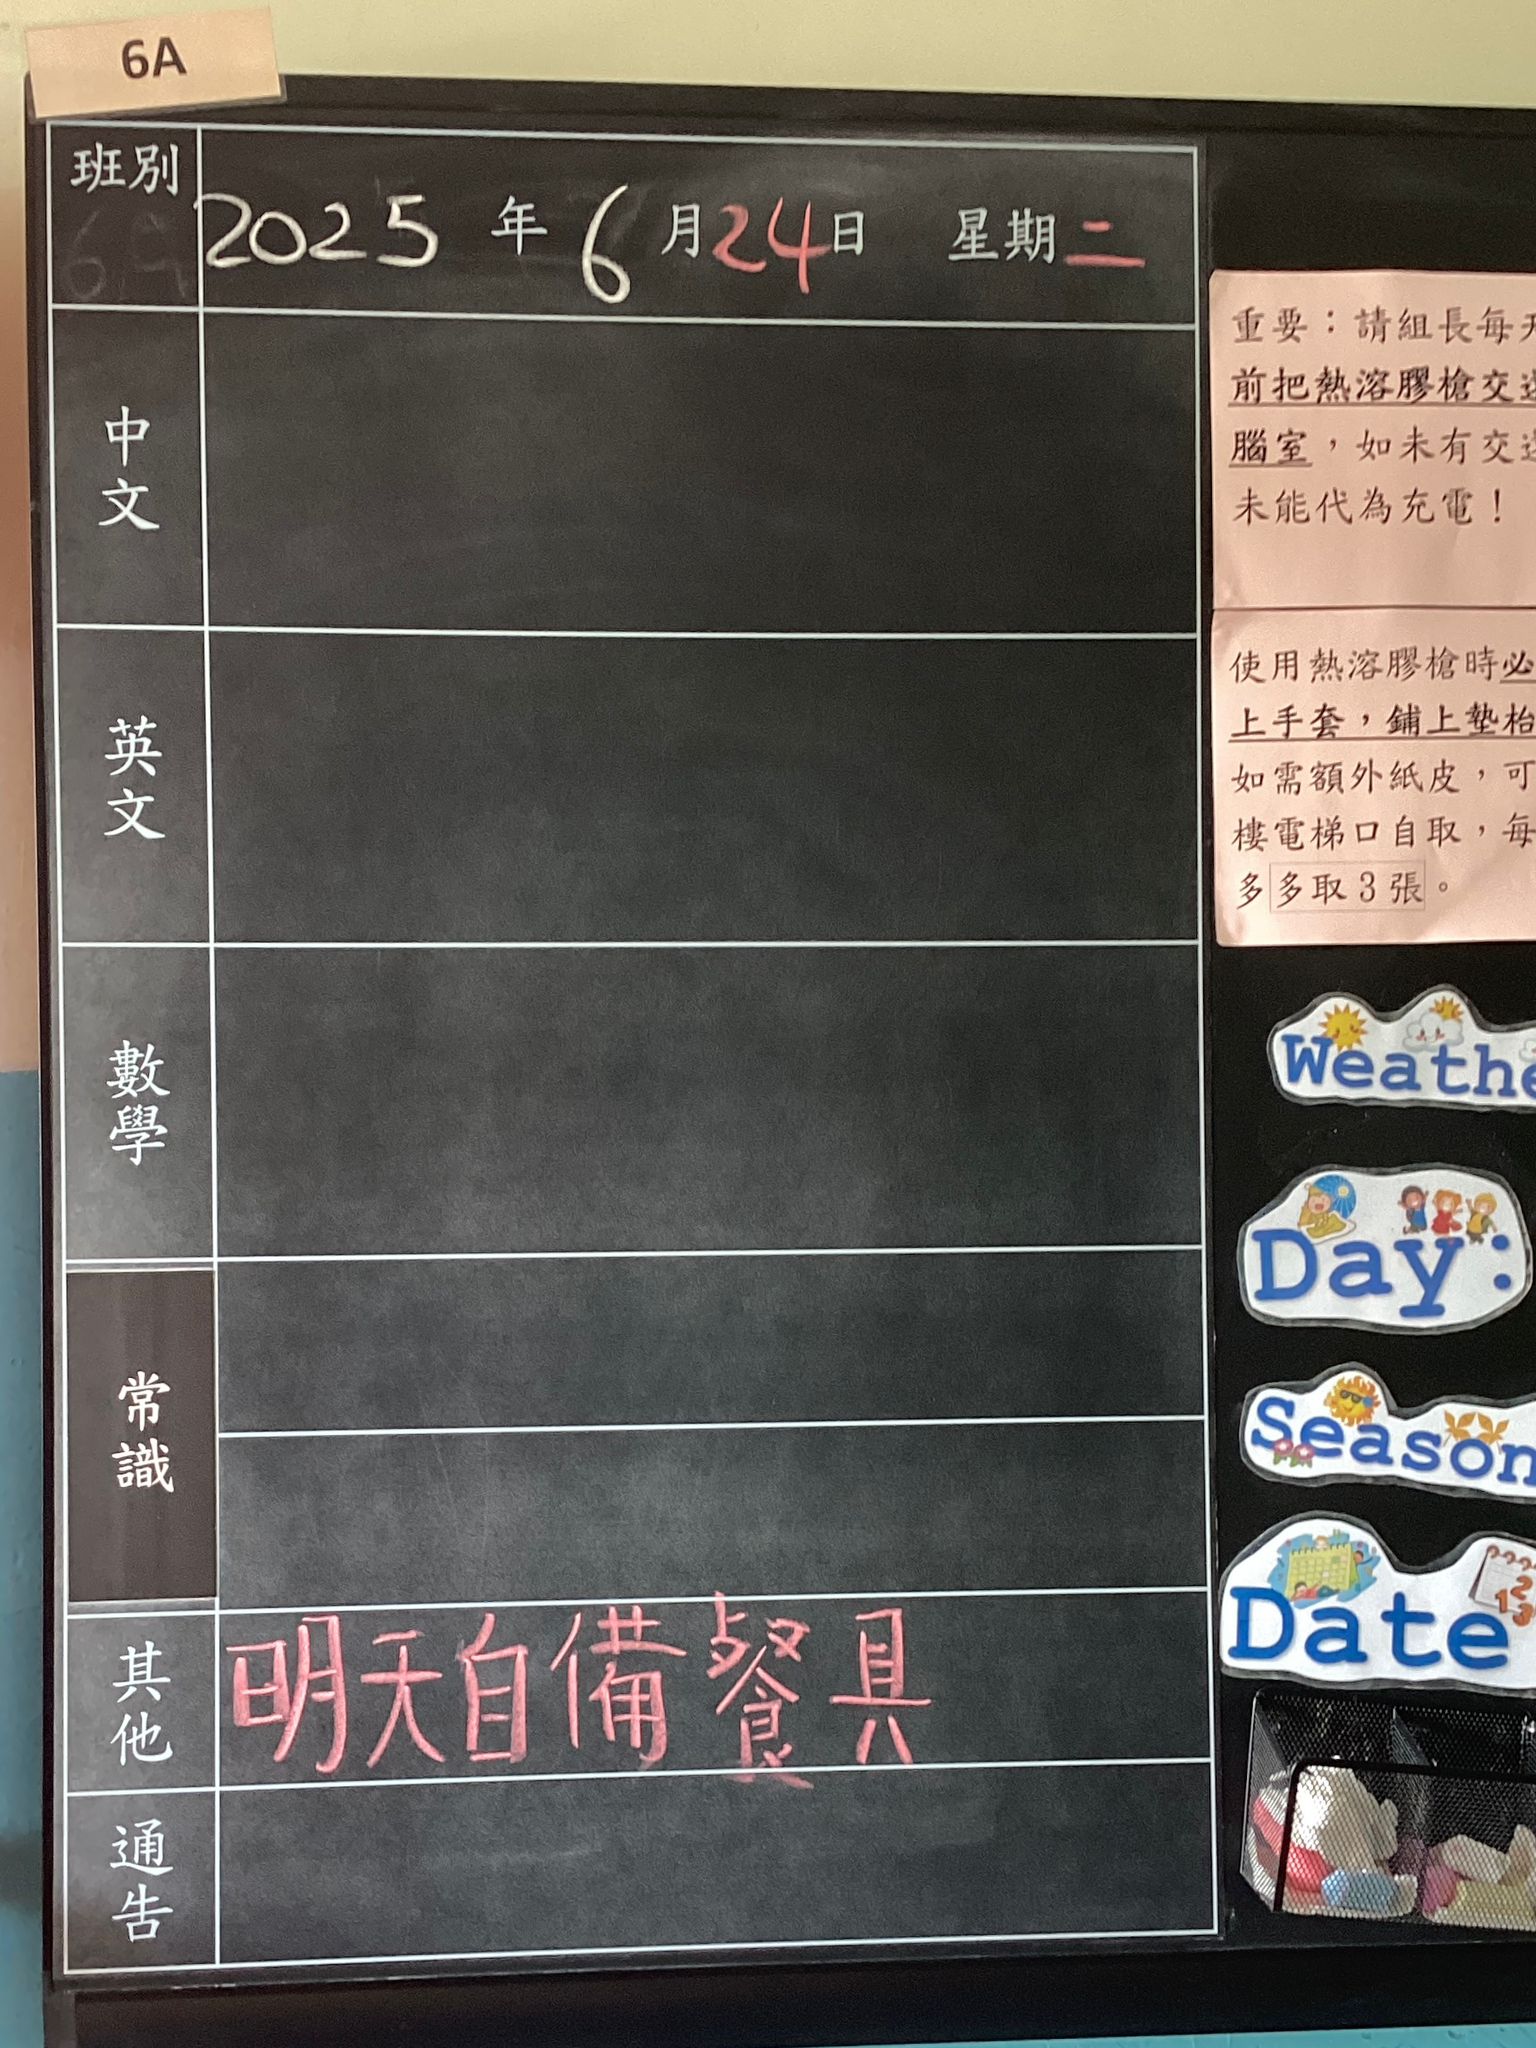 6A
班別
2025 年 6 月 24 日 星期二
中文
英文
數學
常識
其他
明天自備餐具
通告
重要：請組長每天
前把熱溶膠槍交
腦室，如未有交
未能代為充電！
使用熱溶膠槍時必
上手套，鋪上墊枱
如需額外紙皮，可
樓電梯口自取，每
多多取 3 張。
Weathe
Day:
Season
Date